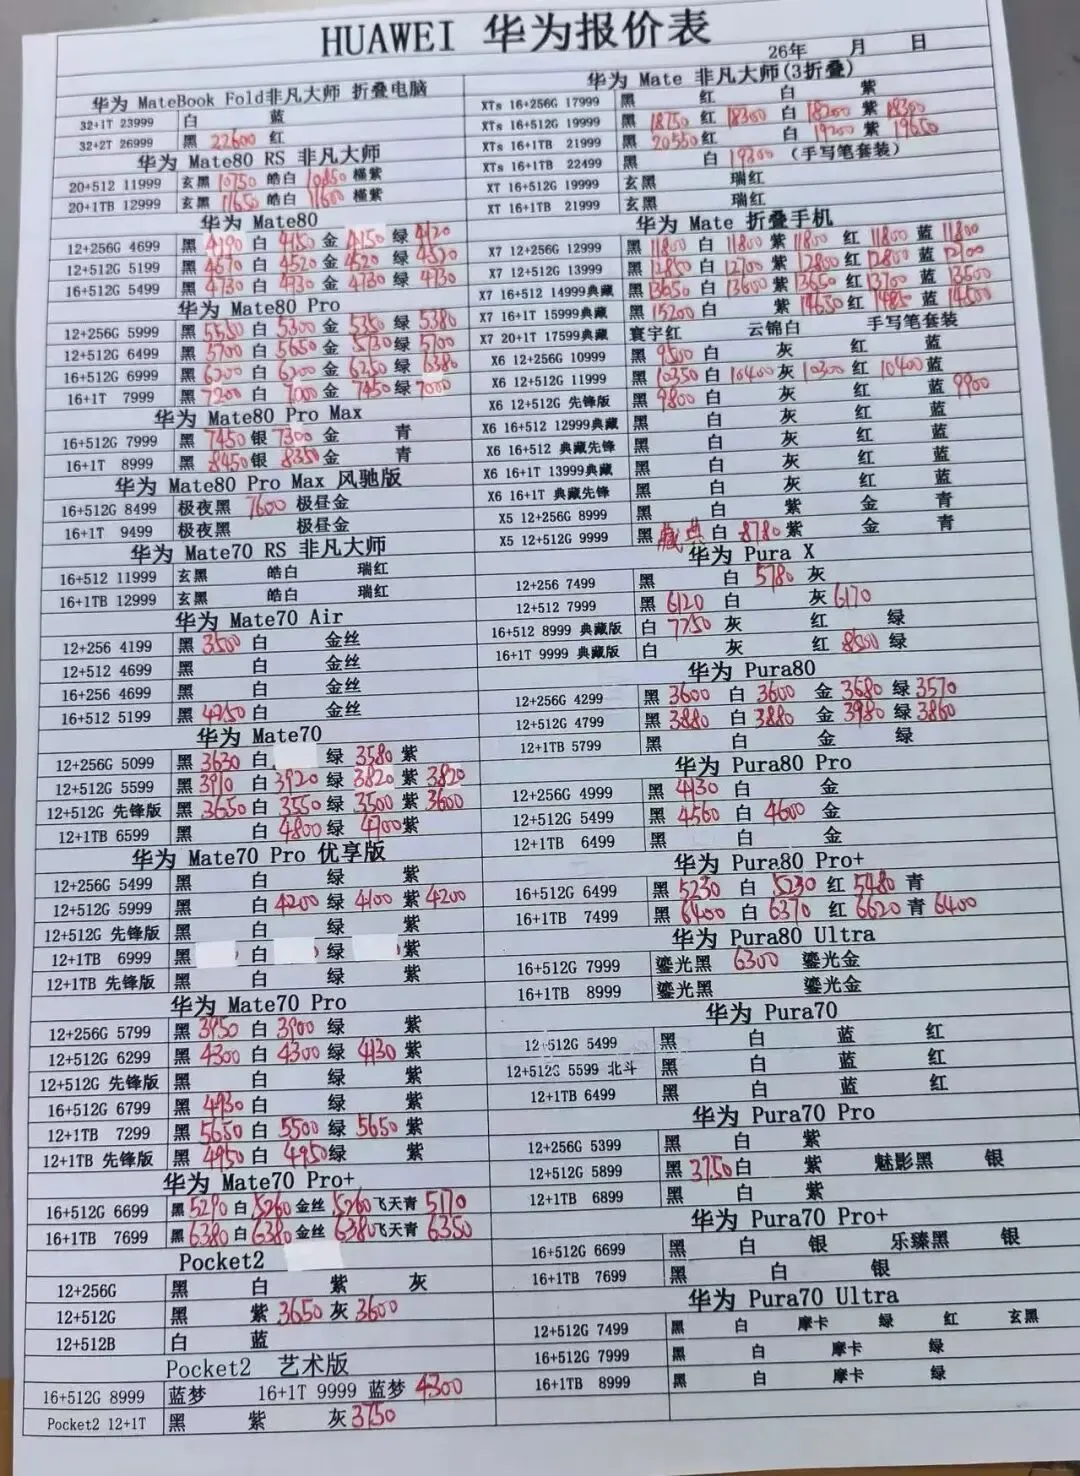 HUAWEI 华为报价表
26年 月 日
华为 MateBook Fold非凡大师 折叠电脑
32+1T 23999 白 蓝
32+2T 26999 黑 22600 红
华为 Mate80 RS 非凡大师
20+512 11999 玄黑 10750 皓白 10850 槿紫
20+1TB 12999 玄黑 11650 皓白 11600 槿紫
华为 Mate80
12+256G 4699 黑 4190 白 4150 金 4150 绿 4120
12+512G 5199 黑 4670 白 4520 金 4520 绿 4520
16+512G 5499 黑 4730 白 4730 金 4730 绿 4730
华为 Mate80 Pro
12+256G 5999 黑 5550 白 5300 金 5350 绿 5380
12+512G 6499 黑 5700 白 5650 金 5730 绿 5700
16+512G 6999 黑 6200 白 6200 金 6250 绿 6380
16+1T 7999 黑 7200 白 7000 金 7450 绿 7000
华为 Mate80 Pro Max
16+512G 7999 黑 7450 银 7300 金 青
16+1T 8999 黑 8450 银 8350 金 青
华为 Mate80 Pro Max 风驰版
16+512G 8499 极夜黑 7600 极昼金
16+1T 9499 极夜黑 极昼金
华为 Mate70 RS 非凡大师
16+512 11999 玄黑 皓白 瑞红
16+1TB 12999 玄黑 皓白 瑞红
华为 Mate70 Air
12+256 4199 黑 3500 白 金丝
12+512 4699 黑 白 金丝
16+256 4699 黑 白 金丝
16+512 5199 黑 4250 白 金丝
华为 Mate70
12+256G 5099 黑 3630 白 绿 3580 紫
12+512G 5599 黑 3910 白 3920 绿 3820 紫 3820
12+512G 先锋版 黑 3650 白 3550 绿 3500 紫 3600
12+1TB 6599 黑 白 4800 绿 4700 紫
华为 Mate70 Pro 优享版
12+256G 5499 黑 白 绿 紫
12+512G 5999 黑 白 4200 绿 4100 紫 4200
12+512G 先锋版 黑 白 绿 紫
12+1TB 6999 黑 白 绿 紫
12+1TB 先锋版 黑 白 绿 紫
华为 Mate70 Pro
12+256G 5799 黑 3950 白 3900 绿 紫
12+512G 6299 黑 4300 白 4300 绿 4130 紫
12+512G 先锋版 黑 白 绿 紫
16+512G 6799 黑 4930 白 绿 紫
12+1TB 7299 黑 5650 白 5500 绿 5650 紫
12+1TB 先锋版 黑 4950 白 4950 绿 紫
华为 Mate70 Pro+
16+512G 6699 黑 5290 白 5260 金丝 5260 飞天青 5170
16+1TB 7699 黑 6380 白 6380 金丝 6380 飞天青 6350
Pocket2
12+256G 黑 白 紫 灰
12+512G 黑 紫 3650 灰 3600
12+512B 白 蓝
Pocket2 艺术版
16+512G 8999 蓝梦 16+1T 9999 蓝梦 4300
Pocket2 12+1T 黑 紫 灰 3750
华为 Mate 非凡大师(3折叠)
XTs 16+256G 17999 黑 红 白 紫
XTs 16+512G 19999 黑 18750 红 18300 白 18200 紫 18300
XTs 16+1TB 21999 黑 20550 红 白 19200 紫 19650
XTs 16+1TB 22499 黑 白 19300 (手写笔套装)
XT 16+512G 19999 玄黑 瑞红
XT 16+1TB 21999 玄黑 瑞红
华为 Mate 折叠手机
X7 12+256G 12999 黑 11800 白 11800 紫 11800 红 11800 蓝 11800
X7 12+512G 13999 黑 12850 白 12700 紫 12800 红 12800 蓝 12700
X7 16+512 14999典藏 黑 13650 白 13600 紫 13650 红 13700 蓝 13600
X7 16+1T 15999典藏 黑 15200 白 紫 14650 红 14850 蓝 14500
X7 20+1T 17599典藏 寰宇红 云锦白 手写笔套装
X6 12+256G 10999 黑 9500 白 灰 红 蓝
X6 12+512G 11999 黑 10350 白 10400 灰 10300 红 10400 蓝
X6 12+512G 先锋版 黑 9800 白 灰 红 蓝 9900
X6 16+512 12999典藏 黑 白 灰 红 蓝
X6 16+512 典藏先锋 黑 白 灰 红 蓝
X6 16+1T 13999典藏 黑 白 灰 红 蓝
X6 16+1T 典藏先锋 黑 白 灰 红 蓝
X5 12+256G 8999 黑 白 紫 金 青
X5 12+512G 9999 黑 藏典 白 8780 紫 金 青
华为 Pura X
12+256 7499 黑 白 5780 灰
12+512 7999 黑 6120 白 灰 6170
16+512 8999 典藏版 白 7250 灰 红 绿
16+1T 9999 典藏版 白 灰 红 8500 绿
华为 Pura80
12+256G 4299 黑 3600 白 3600 金 3680 绿 3570
12+512G 4799 黑 3880 白 3880 金 3980 绿 3860
12+1TB 5799 黑 白 金 绿
华为 Pura80 Pro
12+256G 4999 黑 4130 白 金
12+512G 5499 黑 4560 白 4600 金
12+1TB 6499 黑 白 金
华为 Pura80 Pro+
16+512G 6499 黑 5230 白 5230 红 5480 青
16+1TB 7499 黑 6400 白 6370 红 6620 青 6400
华为 Pura80 Ultra
16+512G 7999 鎏光黑 6300 鎏光金
16+1TB 8999 鎏光黑 鎏光金
华为 Pura70
12+512G 5499 黑 白 蓝 红
12+512G 5599 北斗 黑 白 蓝 红
12+1TB 6499 黑 白 蓝 红
华为 Pura70 Pro
12+256G 5399 黑 白 紫
12+512G 5899 黑 3750 白 紫 魅影黑 银
12+1TB 6899 黑 白 紫
华为 Pura70 Pro+
16+512G 6699 黑 白 银 乐臻黑 银
16+1TB 7699 黑 白 银
华为 Pura70 Ultra
12+512G 7499 黑 白 摩卡 绿 红 玄黑
16+512G 7999 黑 白 摩卡 绿
16+1TB 8999 黑 白 摩卡 绿